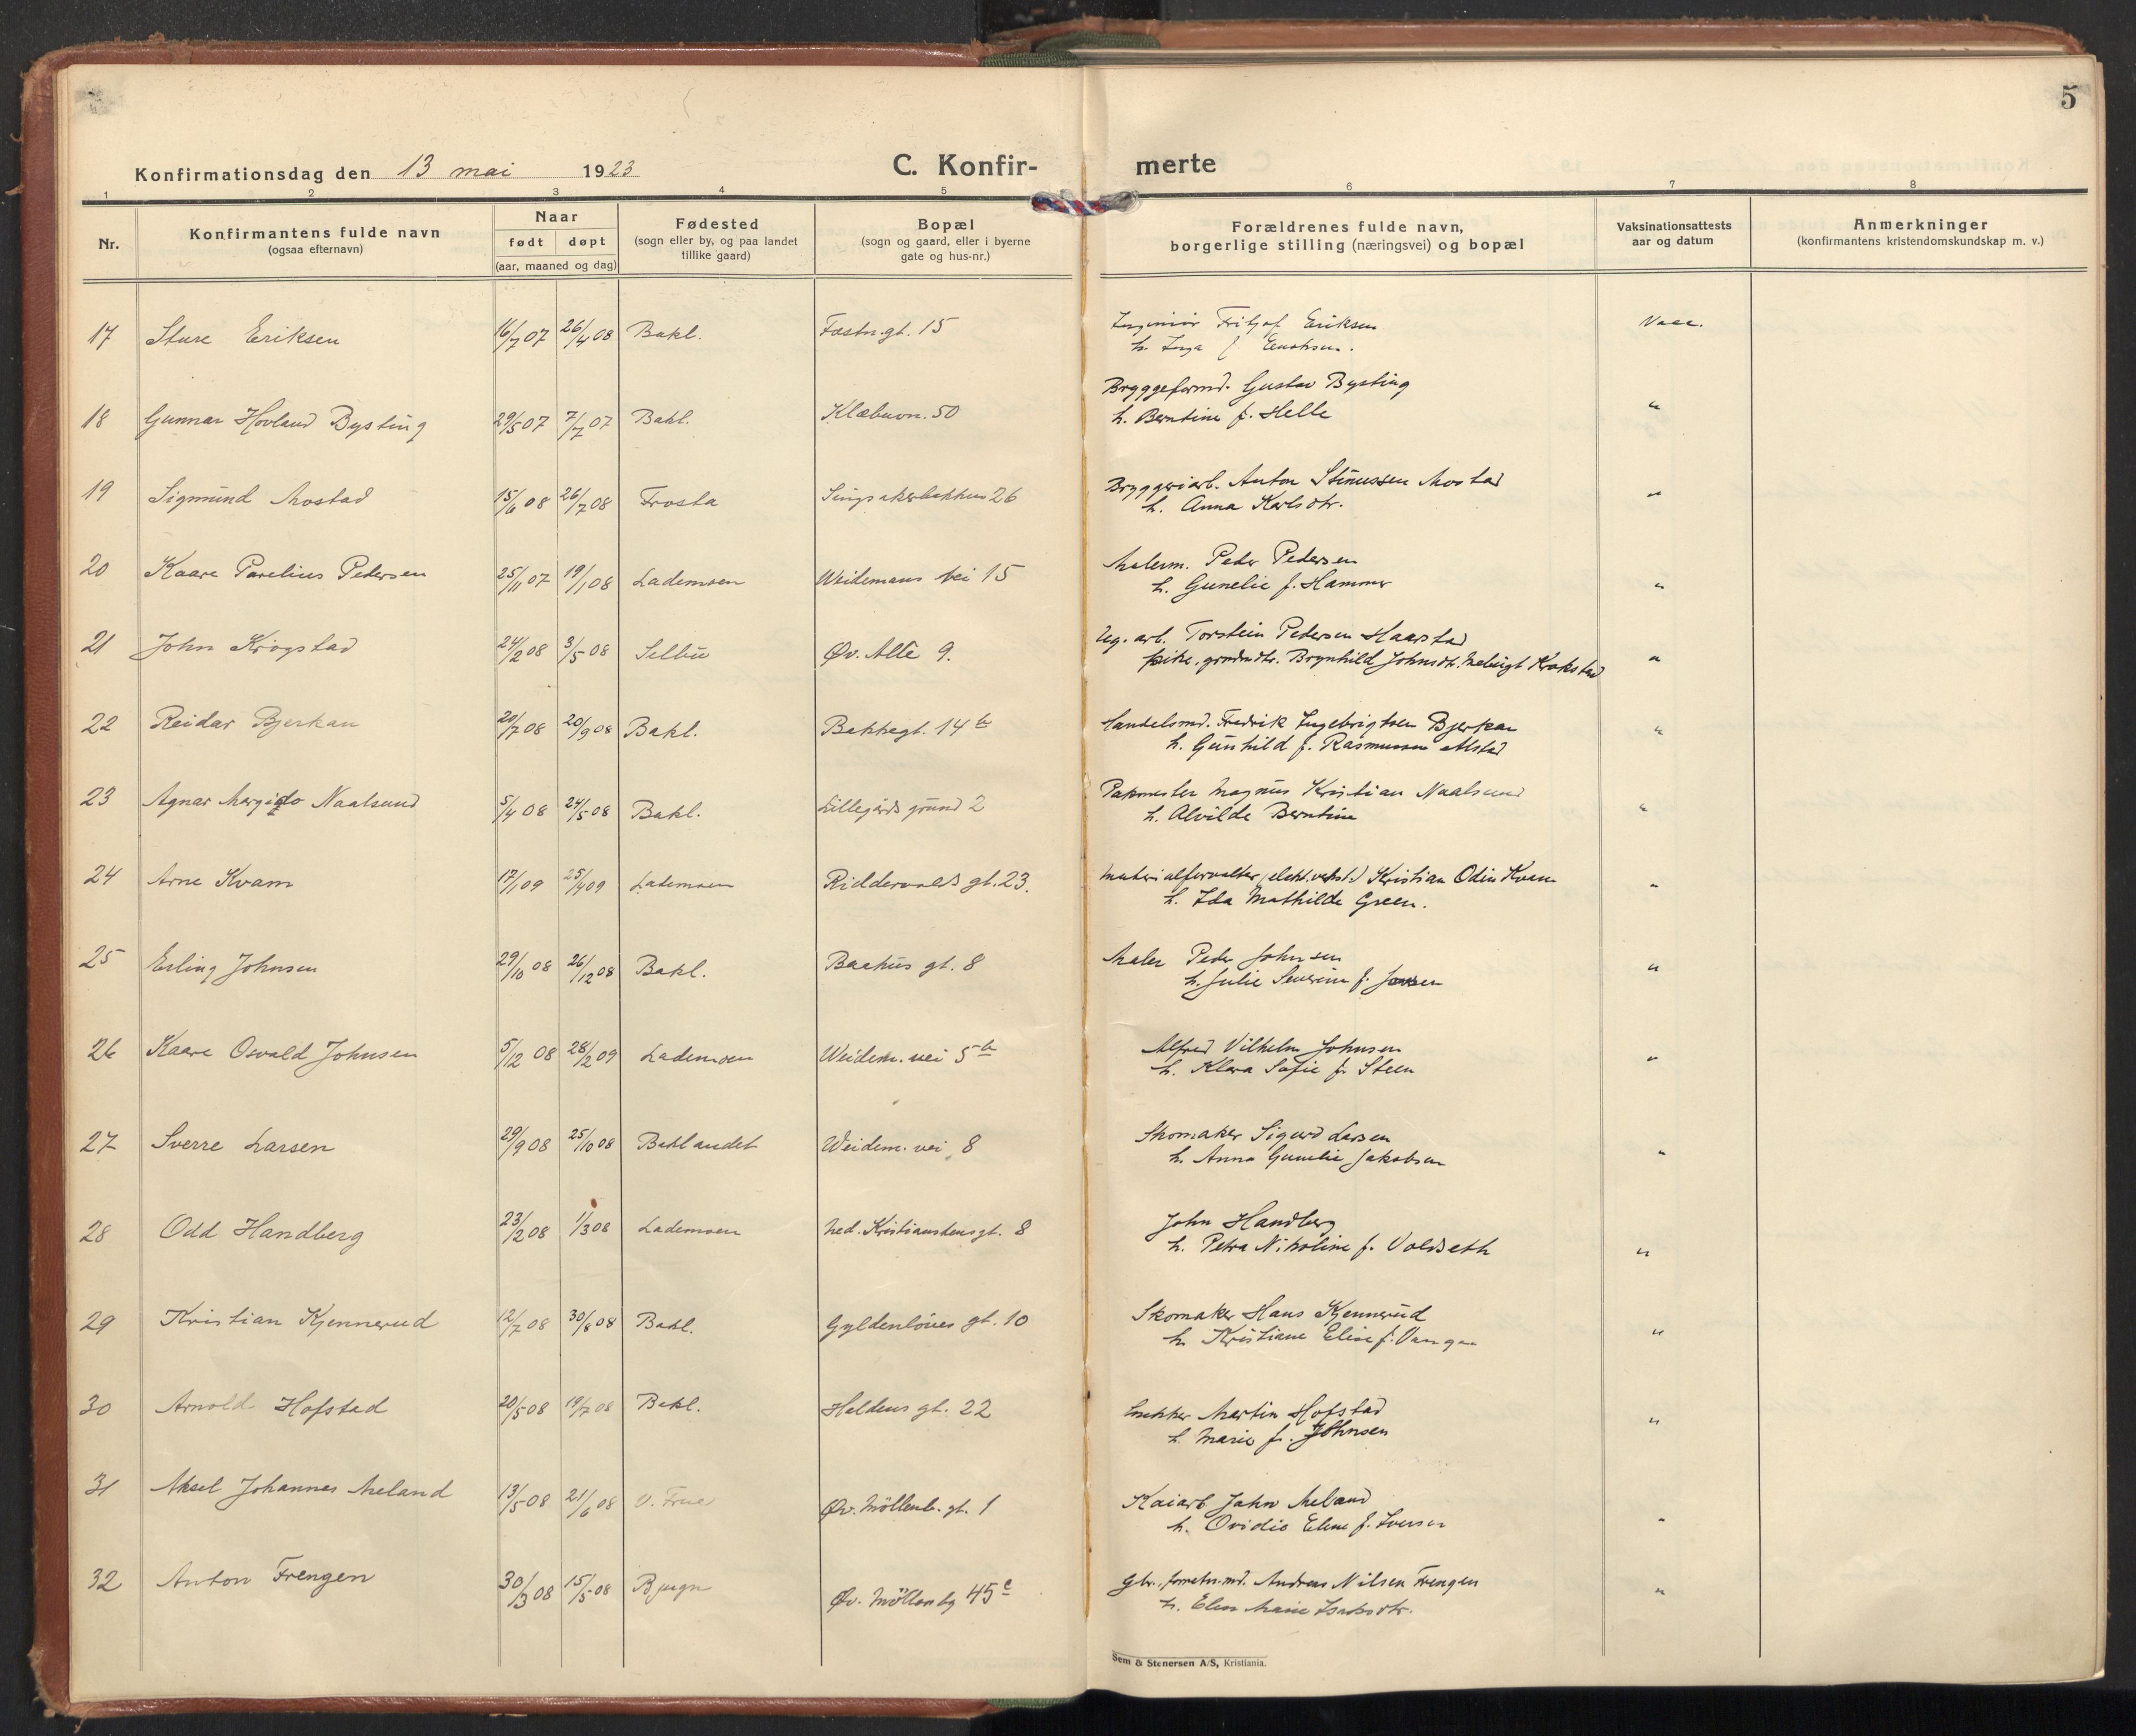 5
Konfirmationsdag den 13 mai 1923
C. Konfir- merte
1 2 3 4 5 6 7 8
Nr.
Konfirmantens fulde navn
(ogsaa efternavn)
Naar
født døpt
(aar, maaned og dag)
Fødested
(sogn eller by, og paa landet
tillike gaard)
Bopæl
(sogn og gaard, eller i byerne
gate og hus-nr.)
Forældrenes fulde navn,
borgerlige stilling (næringsvei) og bopæl
Vaksinationsattests
aar og datum
Anmerkninger
(konfirmantens kristendomskundskap m. v.)
17 Sture Eriksen 16/7 07 26/4 08 Bakl. Fæstn.gt. 15 Ingeniør Fritjof Eriksen Vacc.
h. Inga f.
18 Gunnar Hovland Bysting 29/5 07 7/7 07 Bakl. Klæbuvn. 50 Bryggeformd. Gustav Bysting "
h. Berntine f. Helle
19 Sigmund Mostad 15/6 08 26/7 08 Frosta Singsakerbakken 26 Bryggeriarb. Anton Stinussen Mostad "
h. Anna Karlsdtr.
20 Kaare Parelius Pedersen 25/11 07 19/1 08 Lademoen Weidemans vei 15 Malerm. Peder Pedersen
h. Gunelie f. Hammer "
21 John Krogstad 24/2 08 3/5 08 Selbu Øv. Alle 9. Ug. arb. Torstein Pedersen Haarstad
pike, grdmdtr. Brynhild Johnsdt. Krokstad "
22 Reidar Bjerkan 20/7 08 20/9 08 Bakl. Bakkegt. 14 b Handelsmd. Fredrik Ingebrigtsen Bjerkan "
h. Gunhild f. Rasmussen Alstad
23 Agnar Naalsund 5/4 08 24/5 08 Bakl. Lillegårds grund 2 Pakmester Magnus Kristian Naalsund "
h. Alvilde Berntine
24 Arne Kvam 17/1 09 25/4 09 Lademoen Riddervolds gt. 23. Materialforvalter (elekt. verkst.) Kristian Odin Kvam "
h. Ida Mathilde Green.
25 Erling Johnsen 29/10 08 26/12 08 Bakl. Backus gt. 8 Maler Peder Johnsen "
h. Julie Severine f. Jensen
26 Kaare Osvald Johnsen 5/12 08 28/2 09 Lademoen Weidem. vei 5 b Alfred Vilhelm Johnsen "
h. Klara Sofie f. Steen
27 Sverre Larsen 29/9 08 25/10 08 Baklandet Weidem. vei 8 Skomaker Sigurd Larsen "
h. Anna Gunelie Jakobsen
28 Odd Handberg 23/2 08 1/3 08 Lademoen Ned. Kristianstensgt. 8 John Handberg
h. Petra Nikoline f. Voldseth "
29 Kristian Kjennerud 12/7 08 30/8 08 Bakl. Gyldenløves gt. 10 Skomaker Hans Kjennerud
h. Kristiane Elise f. Vangen "
30 Arnold Hofstad 20/5 08 19/7 08 Bakl. Haldens gt. 22 Snekker Martin Hofstad "
h. Marie f. Johnsen
31 Aksel Johannes Meland 13/5 08 21/6 08 V. Frue Øv. Møllenb. gt. 1 Kaiarb. John Meland
h. Ovidia Eline f. Iversen "
32 Anton Frengen 30/3 08 15/5 08 Bjugn Øv. Møllenbg 45 c Gbr., forretn.md. Andreas Nilsen Frengen "
h. Elen Marie Isaksdtr.
Sem & Stenersen A/S, Kristiania.